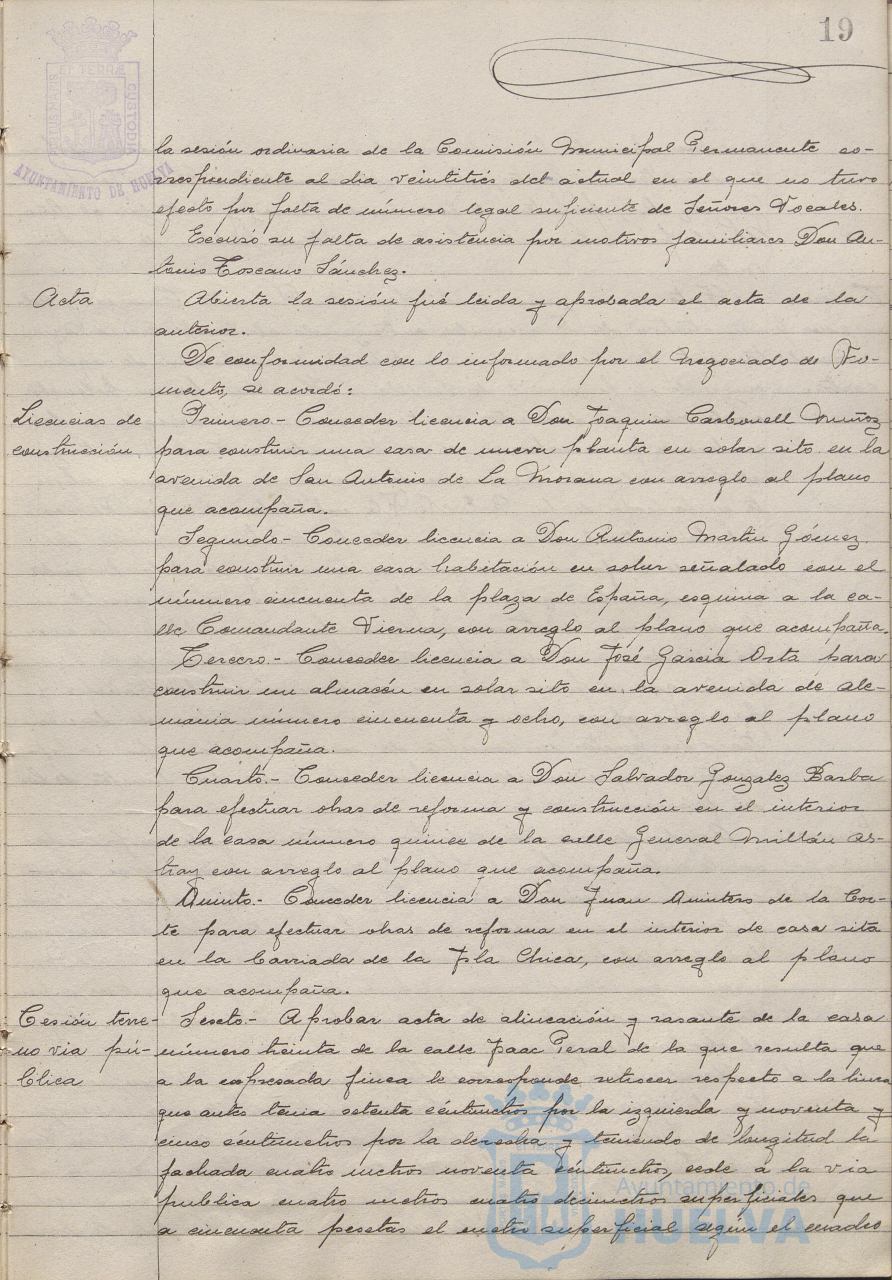 19
PORTUS MARIS ET TERRÆ CUSTODIA
AYUNTAMIENTO DE HUELVA
la sesión ordinaria de la Comisión Municipal Permanente co-
rrespondiente al dia veintitrés del actual en el que no tuvo
efecto por falta de número legal suficiente de Señores Vocales.
Escusó su falta de asistencia por motivos familiares Don An-
tonio Toscano Sánchez.
Acta
Abierta la sesión fué leida y aprobada el acta de la
anterior.
De conformidad con lo informado por el Negociado de Fo-
mento, se acordó:
Licencias de
construcción
Primero.- Conceder licencia a Don Joaquin Carbonell Muñoz
para construir una casa de nueva planta en solar sito en la
avenida de San Antonio de La Morana con arreglo al plano
que acompaña.
Segundo.- Conceder licencia a Don Antonio Martin Gómez
para construir una casa habitación en solar señalado con el
número cincuenta de la plaza de España, esquina a la ca-
lle Comandante Vierna, con arreglo al plano que acompaña.
Tercero.- Conceder licencia a Don José Garcia Osta para
construir un almacén en solar sito en la avenida de Ale-
mania número cincuenta y ocho, con arreglo al plano
que acompaña.
Cuarto.- Conceder licencia a Don Salvador Gonzalez Barba
para efectuar obras de reforma y construcción en el interior
de la casa número quince de la calle General Millán As-
tray con arreglo al plano que acompaña.
Quinto.- Conceder licencia a Don Juan Quintero de la Cor-
te para efectuar obras de reforma en el interior de casa sita
en la barriada de la Isla Chica, con arreglo al plano
que acompaña.
Cesión terre-
no via pú-
blica
Sexto.- Aprobar acta de alineación y rasante de la casa
número treinta de la calle Isaac Peral de la que resulta que
a la expresada finca le corresponde retrocer respecto a la linea
que antes tenia setenta céntimetros por la izquierda y noventa y
cinco céntimetros por la derecha y teniendo de longitud la
fachada cuatro metros noventa céntimetros, cede a la via
publica cuatro metros cuatro decimetros superficiales que
a cincuenta pesetas el metro superficial según el cuadro
Ayuntamiento de
HUELVA